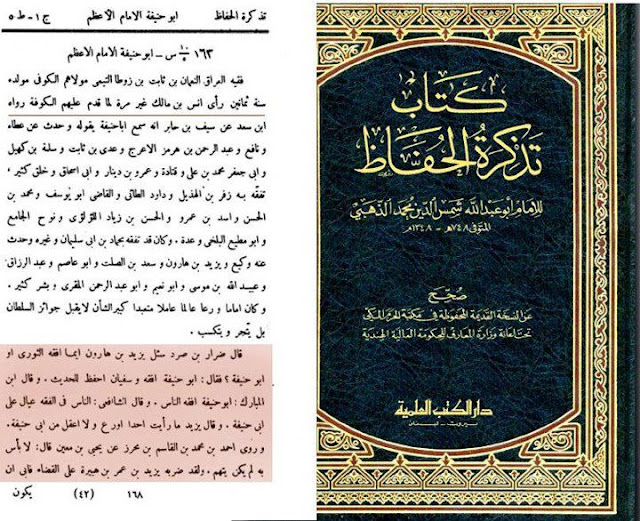 تذكرة الحفاظ ابو حنيفة الامام الاعظم ج١-ط٥
١٦٣ ١٠/٥ س - ابو حنيفة الامام الاعظم
فقيه العراق النعمان بن ثابت بن زوطا التيمى مولاهم الكوفى مولده
سنة ثمانين رأى انس بن مالك غير مرة لما قدم عليهم الكوفة رواه
ابن سعد عن سيف بن جابر انه سمع اباحنيفة يقوله وحدث عن عطاء
ونافع وعبد الرحمن بن هرمز الاعرج وعدى بن ثابت وسلمة بن كهيل
وابى جعفر محمد بن على وقتادة وعمرو بن دينار وابى اسحاق وخلق كثير،
تفقه به زفر بن الهذيل وداود الطائى والقاضى ابو يوسف ومحمد بن
الحسن واسد بن عمرو والحسن بن زياد اللؤلؤى ونوح الجامع
وابو مطيع البلخى وعدة. وكان قد تفقه بحماد بن ابى سليمان وغيره وحدث
عنه وكيع ويزيد بن هارون وسعد بن الصلت وابو عاصم وعبد الرزاق
وعبيد الله بن موسى وابو نعيم وابو عبد الرحمن المقرى وبشر كثير.
وكان اماما ورعا عالما عاملا متعبدا كبير الشأن لايقبل جوائز السلطان
بل يتجر ويتكسب.
قال ضرار بن صرد سئل يزيد بن هارون ايما افقه الثورى او
ابو حنيفة؟ فقال: ابو حنيفة افقه وسفيان احفظ للحديث. وقال ابن
المبارك: ابو حنيفة افقه الناس. وقال الشافعى: الناس فى الفقه عيال على
ابى حنيفة. وقال يزيد ما رأيت احدا اورع ولا اعقل من ابى حنيفة.
وروى احمد بن محمد بن القاسم بن محرز عن يحيى بن معين قال: لا بأس
به لم يكن يتهم. ولقد ضربه يزيد بن عمر بن هبيرة على القضاء فابى ان
١٦٨ (٤٢) يكون
كتاب
تذكرة الحفاظ
للإمام أبو عبد الله شمس الدين محمد الذهبي
المتوفى ٧٤٨هـ - ١٣٤٨م
صحح
عن النسخة القديمة المحفوظة في مكتبة الحرم المكي
تحت اعانة وزارة المعارف للحكومة العالية الهندية
دار الكتب العلمية
بيروت - لبنان